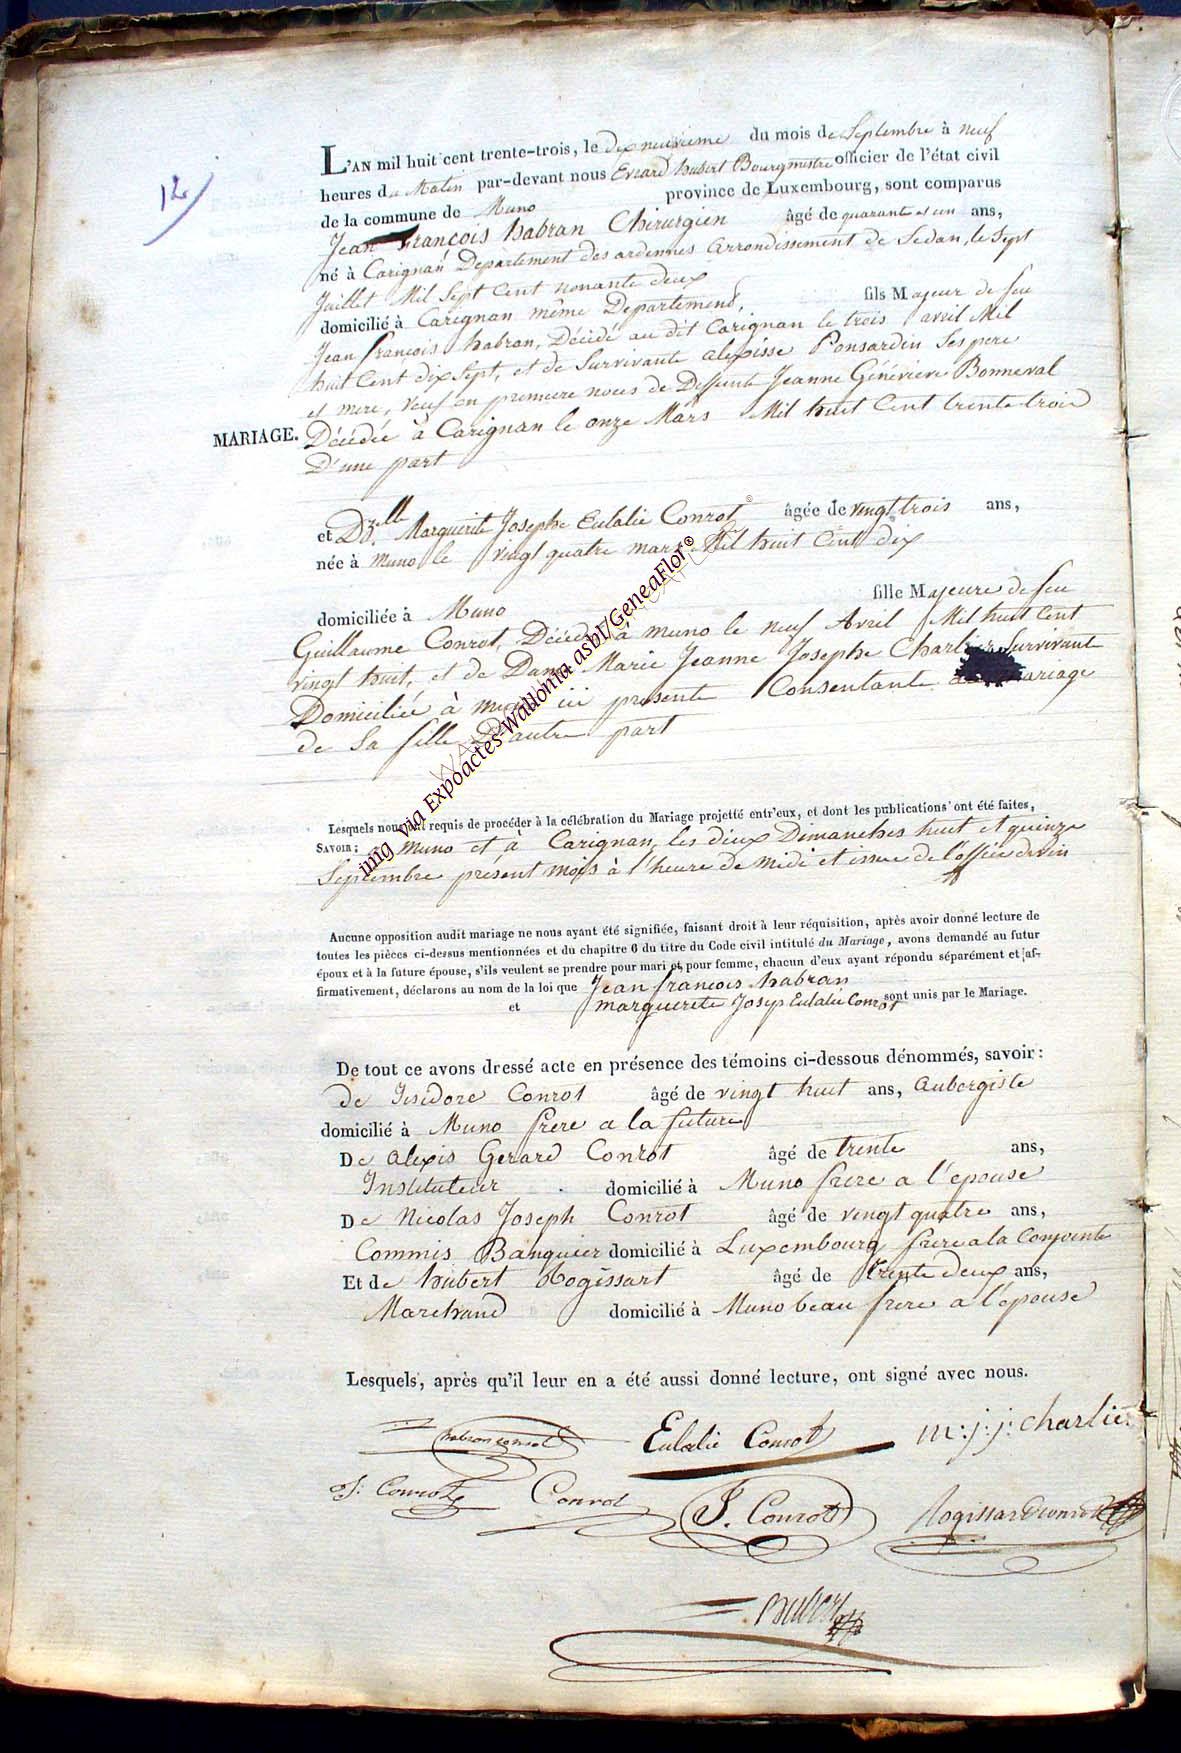 12
L'AN mil huit cent trente-trois, le dix neuvieme du mois de Septembre à neuf
heures du Matin par-devant nous Evrard hubert Bourgmestre officier de l'état civil
de la commune de Muno province de Luxembourg, sont comparus
Jean François habran Chirurgien âgé de quarante et un ans,
né à Carignan Departement des ardennes arrondissement de Sedan, le Sept
Juillet Mil Sept Cent nonante deux
domicilié à Carignan même Departement, fils Majeur de feu
Jean françois habran, Décédé au dit Carignan le trois avril Mil
huit Cent dix Sept, et de Survivante alexisse Ponsardin Ses pere
et mere, veuf en premiere noces de Deffunte Jeanne Généviève Bonneval
MARIAGE. Décédée à Carignan le onze Mars Mil huit Cent trente trois
D'une part
et Dzelle Marguerite Josephe Eulalie Conrot âgée de vingt trois ans,
née à muno le vingt quatre mars Mil huit Cent dix
domiciliée à Muno fille Majeure de feu
Guillaume Conrot, Décédé à muno le neuf Avril Mil huit Cent
vingt huit, et de Dame Marie Jeanne Josephe Charlier Survivante
Domiciliée à muno ici presente Consentante au Mariage
de Sa fille D'autre part
img via Expoactes-Wallonia asbl/GeneaFlor©
Lesquels nous ont requis de procéder à la célébration du Mariage projetté entr'eux, et dont les publications ont été faites,
SAVOIR: à Muno et à Carignan, les deux Dimanches huit et quinze
Septembre présent mois à l'heure de midi et issue de l'office divin
Aucune opposition audit mariage ne nous ayant été signifiée, faisant droit à leur réquisition, après avoir donné lecture de
toutes les pièces ci-dessus mentionnées et du chapitre 6 du titre du Code civil intitulé du Mariage, avons demandé au futur
époux et à la future épouse, s'ils veulent se prendre pour mari et pour femme, chacun d'eux ayant répondu séparément et af-
firmativement, déclarons au nom de la loi que Jean françois habran
et marguerete Josep Eulalie Conrot sont unis par le Mariage.
De tout ce avons dressé acte en présence des témoins ci-dessous dénommés, savoir:
de Isidore Conrot âgé de vingt huit ans, Aubergiste
domicilié à Muno frere a la future
De alexis Gerard Conrot âgé de trente ans,
Instituteur domicilié à Muno frere a l'épouse
De Nicolas Joseph Conrot âgé de vingt quatre ans,
Commis Banquier domicilié à Luxembourg frere a la Conjointe
Et de hubert Rogissart âgé de trente deux ans,
Marchand domicilié à Muno beau frere a l'épouse
Lesquels, après qu'il leur en a été aussi donné lecture, ont signé avec nous.
habran conrot Eulalie Conrot m: j: j: charlier
Conrot Conrot J. Conrot Rogissart Conrot
hubert